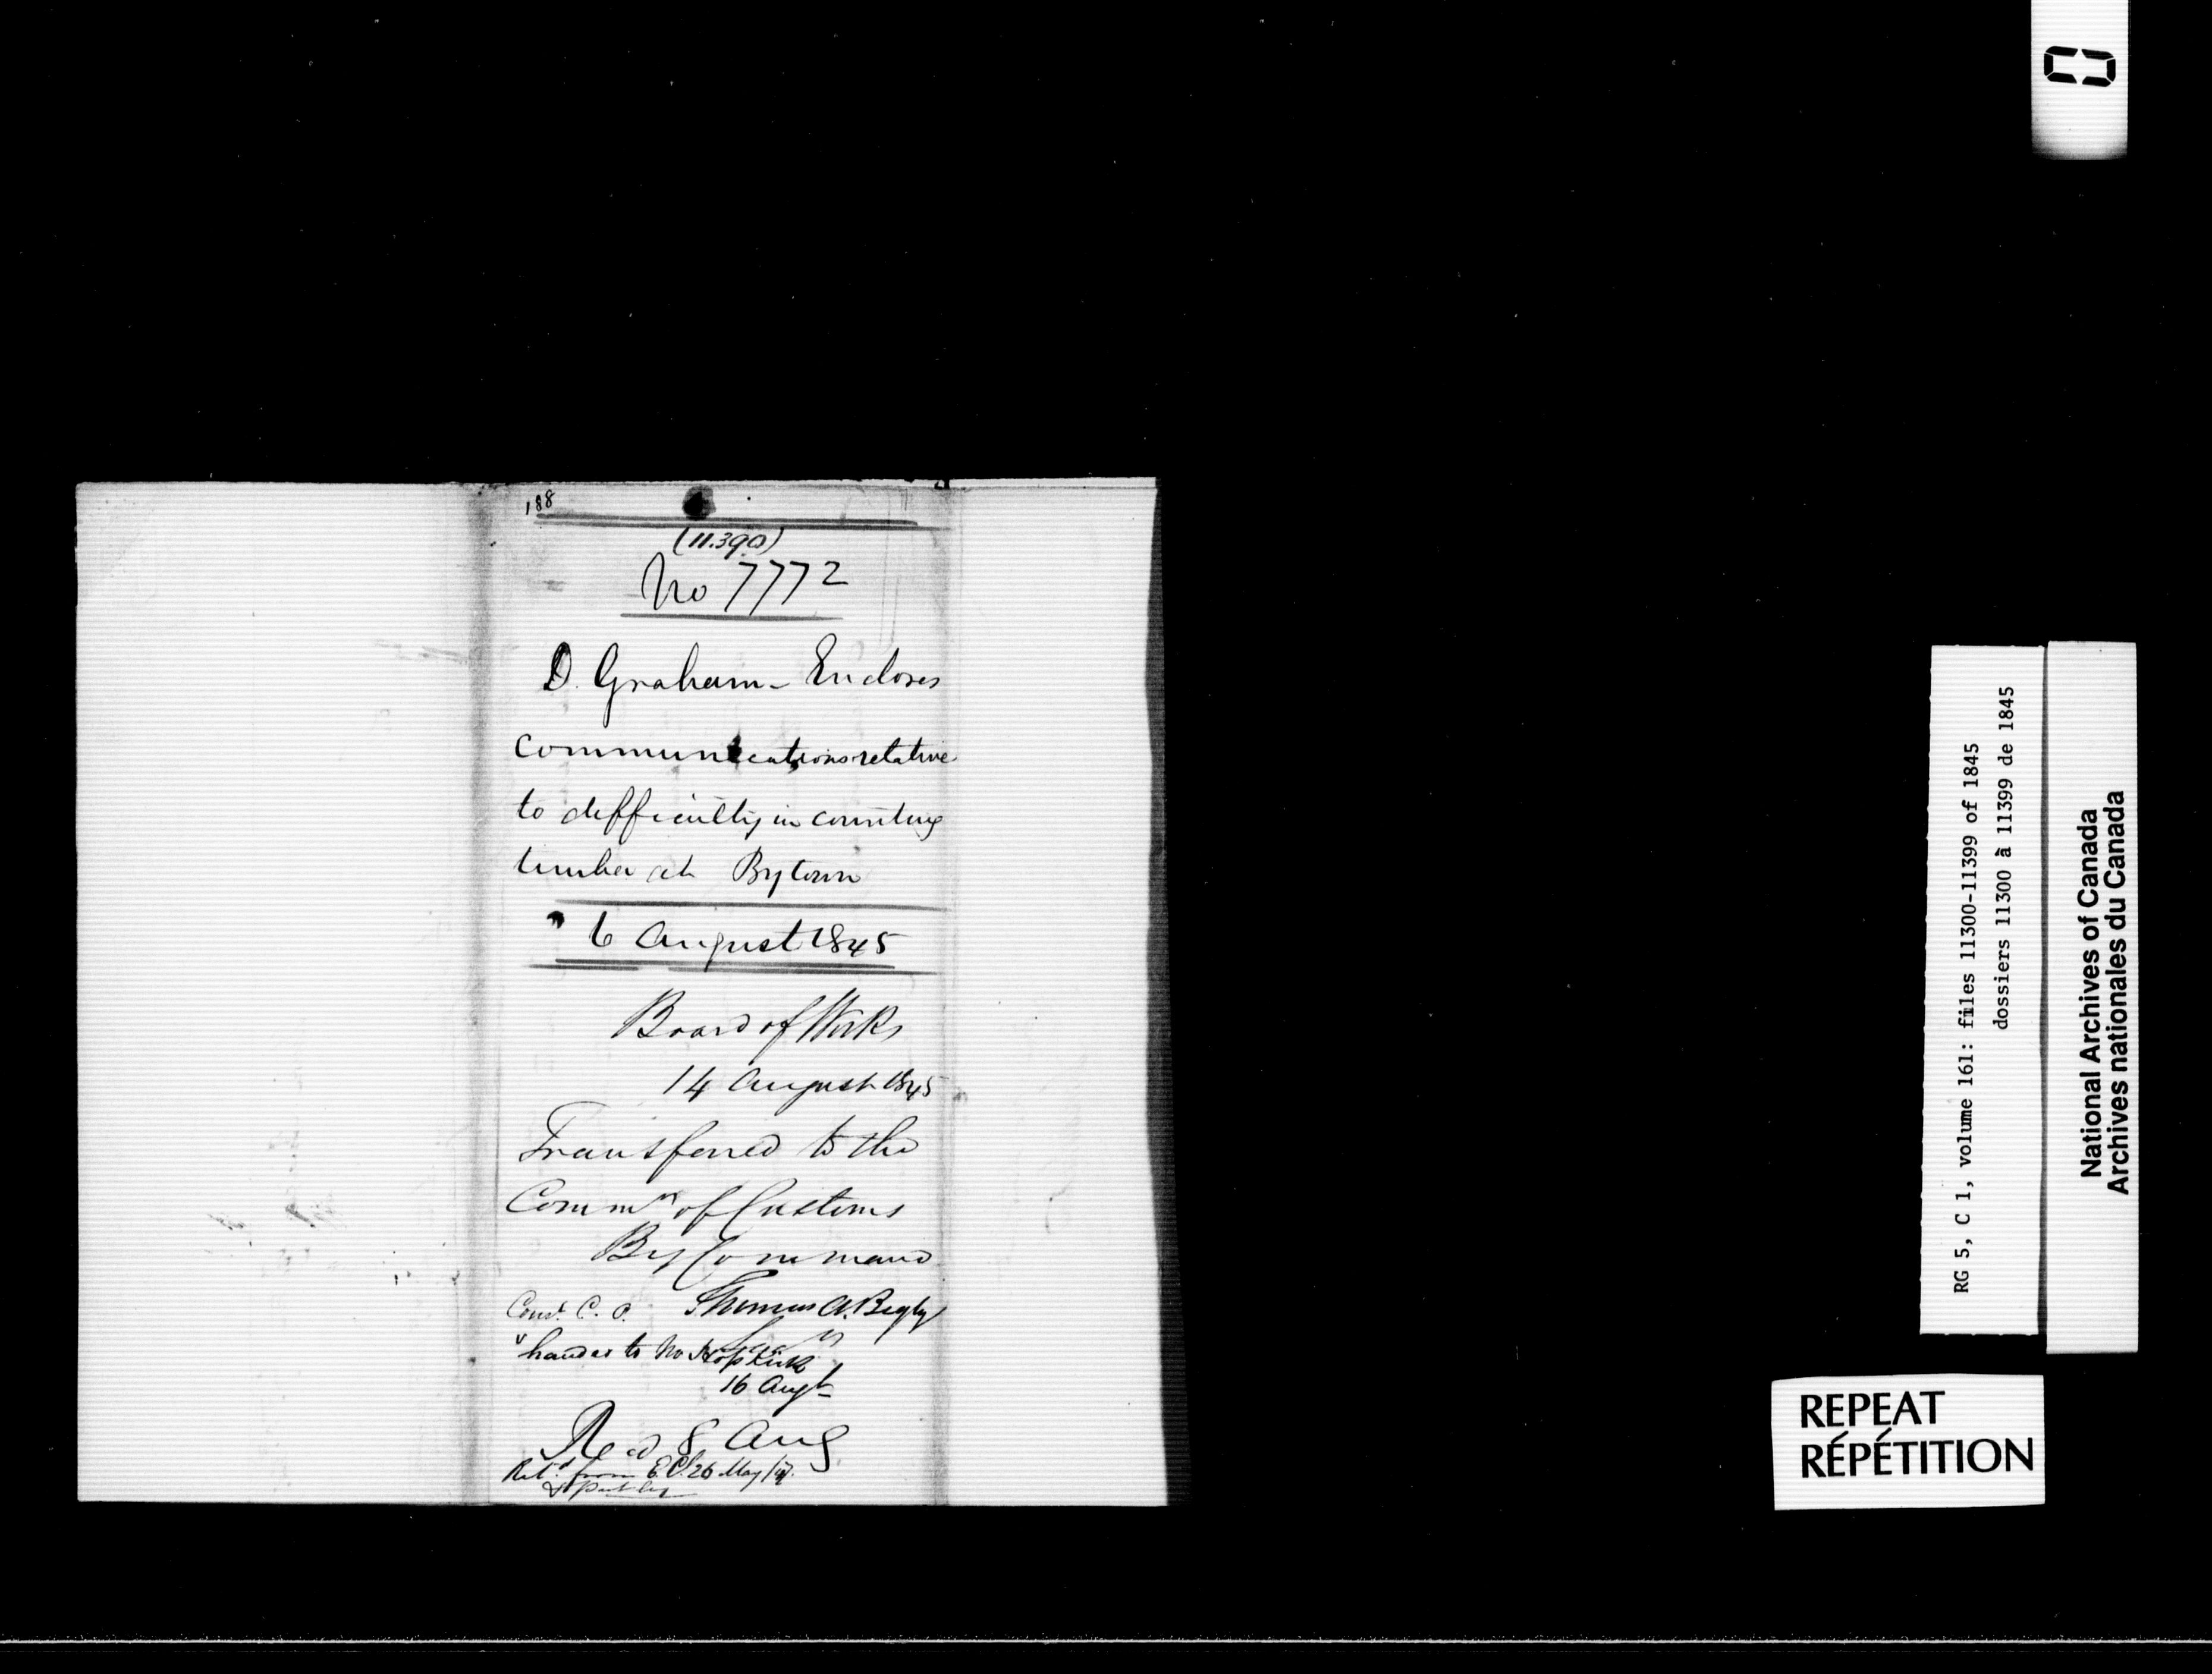 188
(11.390)
No 7772
D. Graham - Encloses
communications relative
to difficulty in counting
timber at Bytown
6 August 1845
Board of Works
14 August 1845
Transferred to the
Commr of Customs
By Command
Thomas A. Begly
Secy
handed to Mr Hopkirk
16 Augt
Recd 8 Aug
Retd from E.C. 26 May /47.
RG 5, C 1, volume 161: files 11300-11399 of 1845
dossiers 11300 à 11399 de 1845
National Archives of Canada
Archives nationales du Canada
REPEAT
RÉPÉTITION